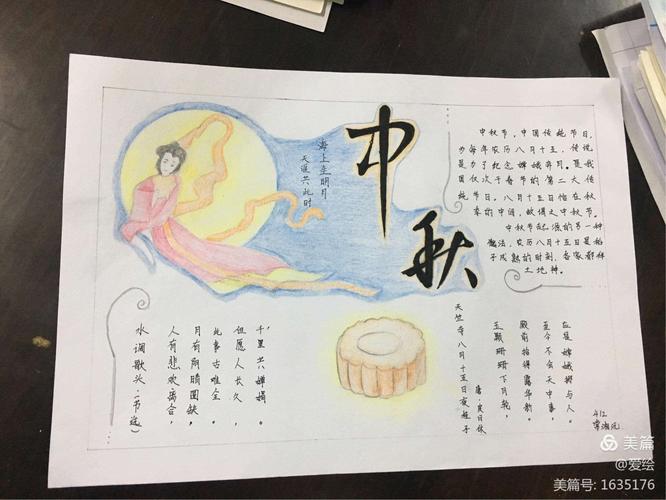 中秋
海上生明月
天涯共此时
中秋节,中国传统节日,
为每年农历八月十五,传说
是为了纪念嫦娥奔月。我
国仅次于春节的第二大传
统节日。八月十五恰在秋
季的中间,故谓之中秋节。
中秋节起源的另一种
说法,农历八月十五日是稻
子成熟的时刻,各家都拜
土地神。
水调歌头(节选)
人有悲欢离合,
月有阴晴圆缺,
此事古难全。
但愿人长久,
千里共婵娟。
天竺寺八月十五日夜桂子
唐·皮日休
玉颗珊珊下月轮,
殿前拾得露华新。
至今不会天中事,
应是嫦娥掷与人。
412
美篇
@爱绘
美篇号: 1635176